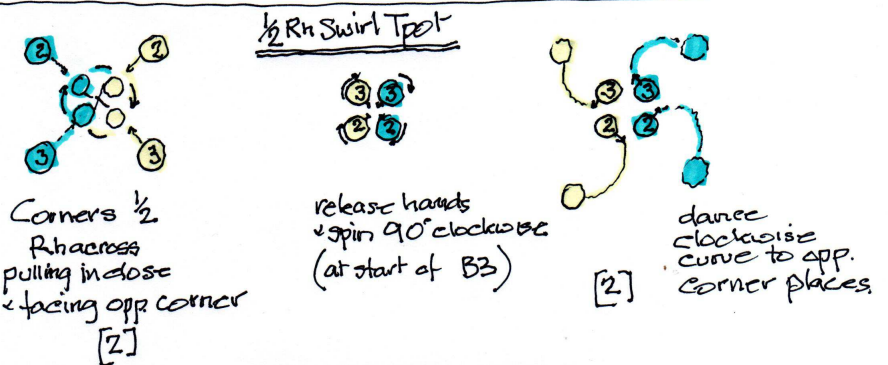 1/2 RH Swirl Tpot
2
2
3
3
Corners 1/2
RHacross
pulling in close
& facing opp. corner
[2]
3 3
2 2
release hands
& spin 90° clockwise
(at start of B3)
3 3
2 2
dance
clockwise
curve to opp.
corner places.
[2]